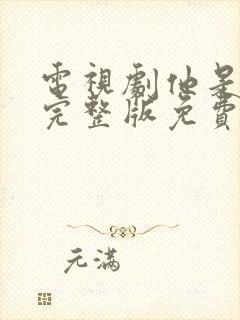 電視劇他是
完整版免費
元滿